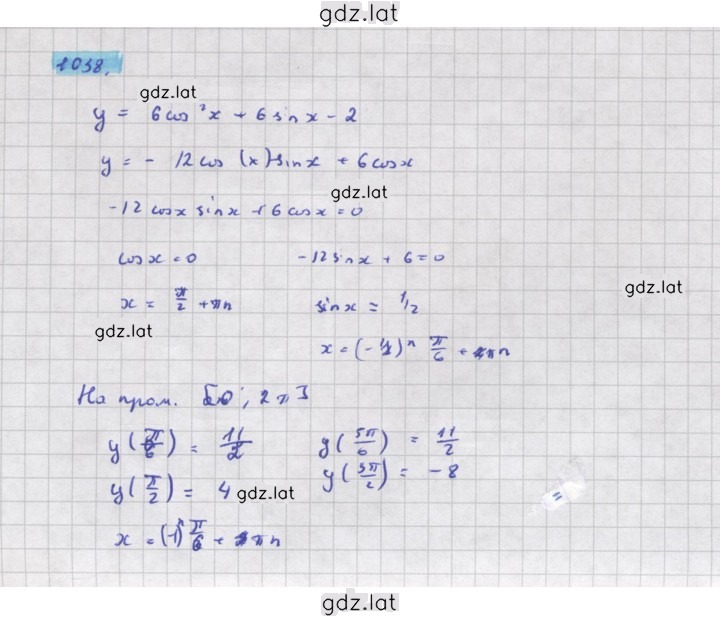 gdz.lat
1038.
gdz.lat
y = 6 cos²x + 6 sin x - 2
y = - 12 cos (x) sin x + 6 cos x
gdz.lat
-12 cos x sin x + 6 cos x = 0
cos x = 0    -12 sin x + 6 = 0
gdz.lat
x = π/2 + πn    sin x = 1/2
gdz.lat
x = (-1)ⁿ π/6 + πn
На пром. [0; 2π]
y(π/6) = 11/2    y(5π/6) = 11/2
y(π/2) = 4    y(3π/2) = -8
gdz.lat
=
x = (-1)ⁿ π/6 + πn
gdz.lat